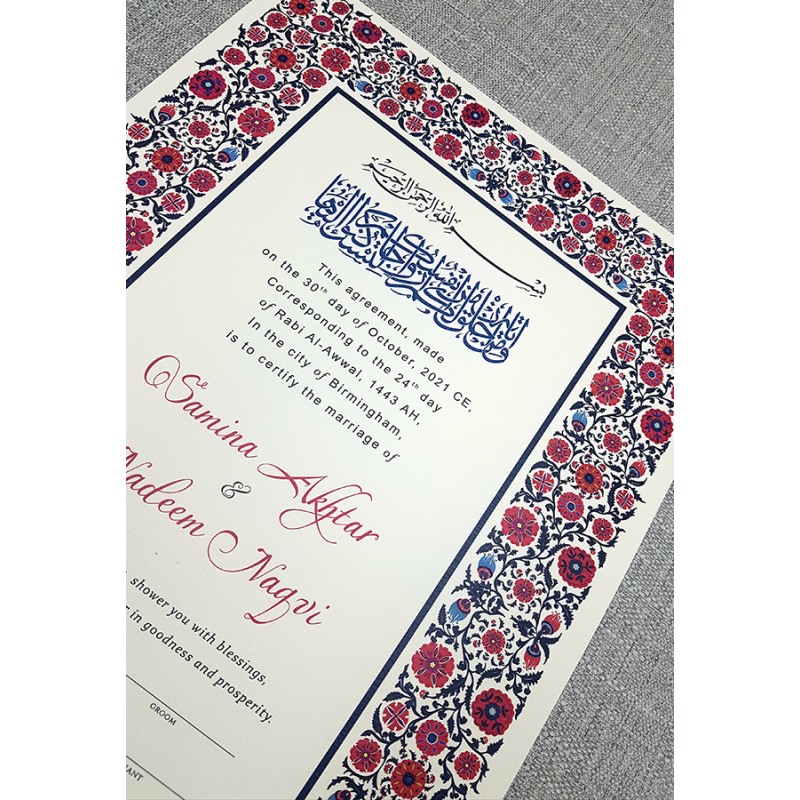 بسم الله الرحمن الرحيم
ومن آياته أن خلق لكم من أنفسكم أزواجا لتسكنوا إليها
This agreement, made
on the 30th day of October, 2021 CE,
Corresponding to the 24th day
of Rabi Al-Awwal, 1443 AH,
In the city of Birmingham,
is to certify the marriage of
Samina Akhtar
&
Nadeem Naqvi
shower you with blessings,
in goodness and prosperity.
GROOM